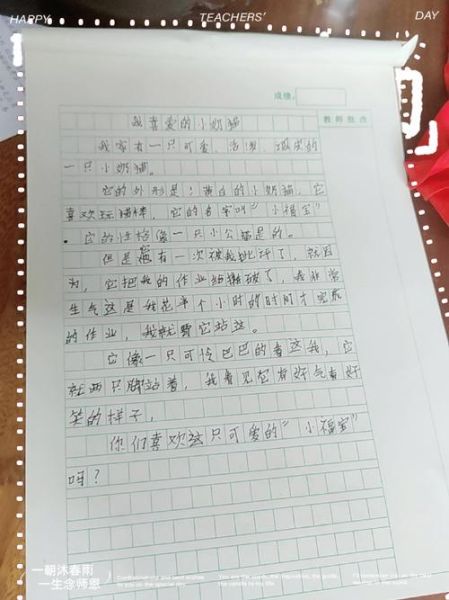 HAPPY TEACHERS' DAY
成绩:
教师批改
我喜爱的小奶猫
我家有一只可爱、活泼、淘气的
一只小奶猫。
它的外形是:黄白的小奶猫,它
喜欢玩猫棒,它的名字叫"小福宝"
。它的性格像一只小公猫是的。
但是有一次被我批评了,就因
为,它把我的作业给撕破了,我非常
生气这是我花半个小时的时间才完成
的作业,我就罚它站这。
它像一只可怜巴巴的看这我,它
就两只脚站着,我看见它有好气有好
笑的样子,
你们喜欢这只可爱的"小福宝"
吗?
一朝沐春雨
一生念师恩